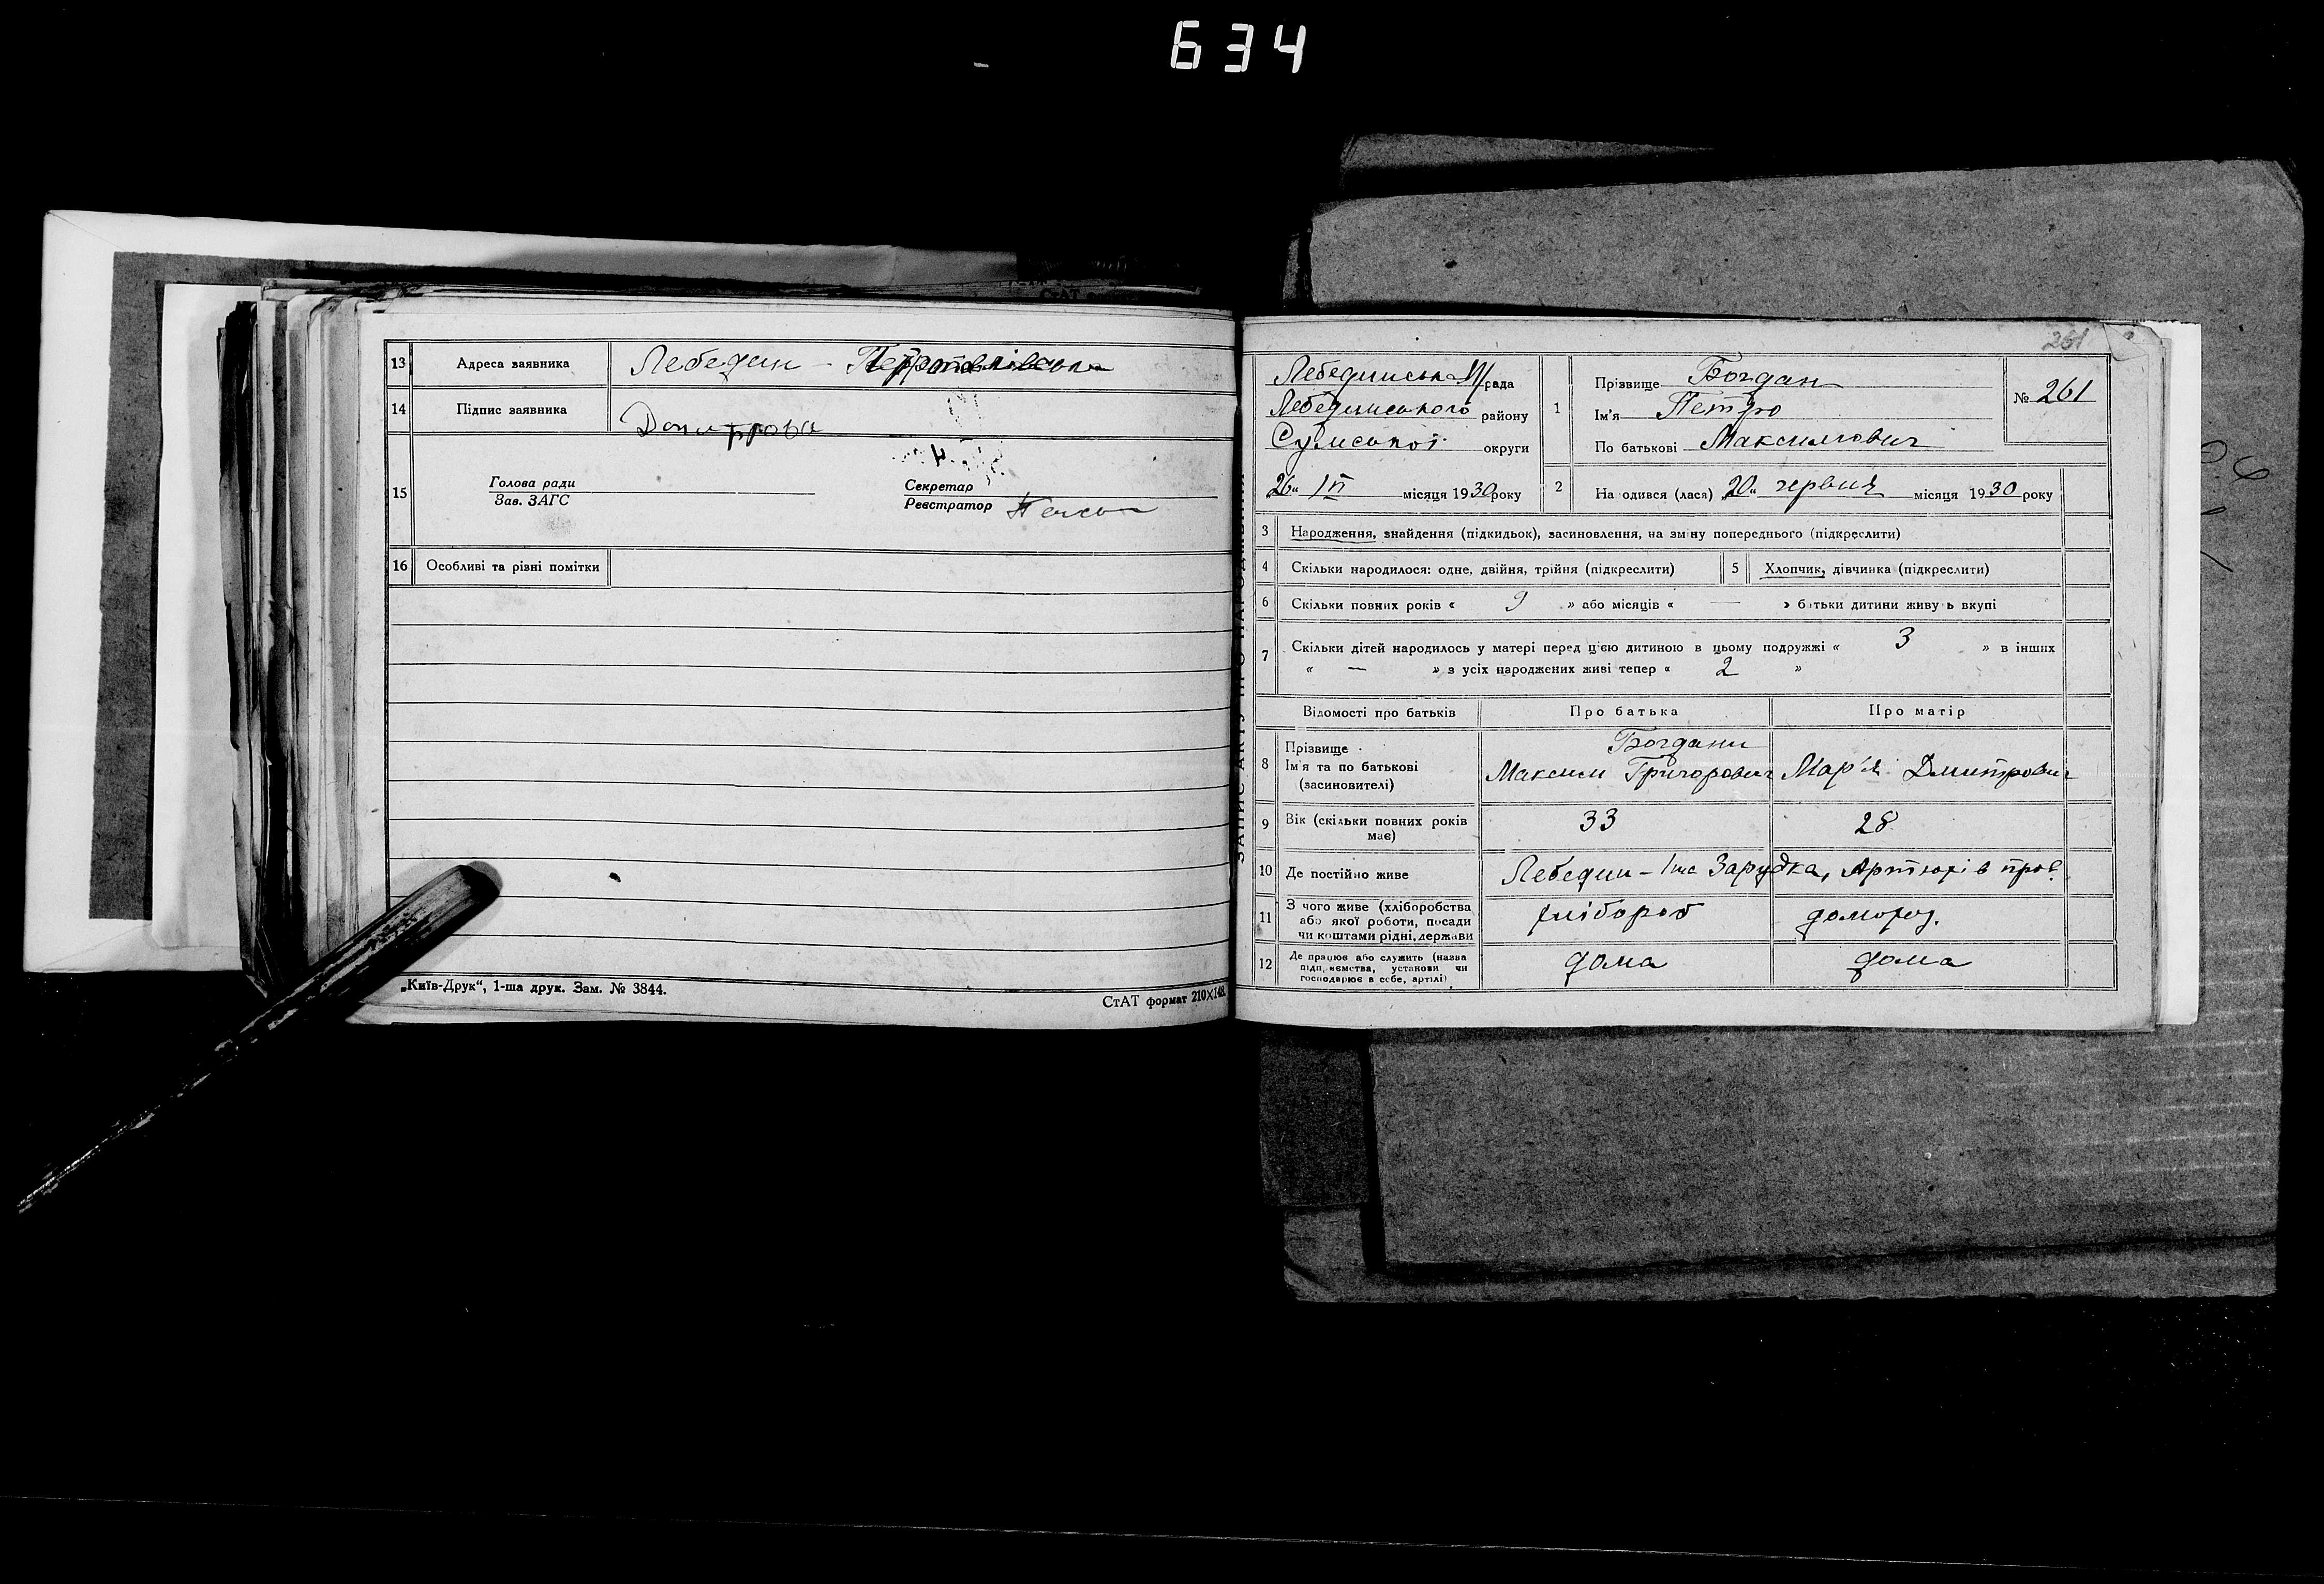 634
13 Адреса заявника Лебедин -
14 Підпис заявника
15 Голова ради
Зав. ЗАГС
Секретар
Реєстратор
16 Особливі та різні помітки
„Київ-Друк“, 1-ша друк. Зам. № 3844.
СтАТ формат 210×148.
261
Лебединська М/рада
Лебединського району
Сумської округи
26 місяця 1930 року
1 Прізвище Богдан
Ім'я Петро
По батькові Максимович
№ 261
2 На одився (лася) „20„ червня місяця 1930 року
3 Народження, знайдення (підкидьок), засиновлення, на зміну попереднього (підкреслити)
4 Скільки народилося: одне, двійня, трійня (підкреслити) 5 Хлопчик, дівчинка (підкреслити)
6 Скільки повних років « 9 » або місяців « — » батьки дитини живуть вкупі
7 Скільки дітей народилось у матері перед цією дитиною в цьому подружжі « 3 » в інших
« — » з усіх народжених живі тепер « 2 »
Відомості про батьків Про батька Про матір
8 Прізвище Богдани
Ім'я та по батькові Максим Григорович Мар'я Дмитрович
(засиновителі)
9 Вік (скільки повних років має) 33 28
10 Де постійно живе Лебедин - 1ша Зарудка, Артюхів пров.
11 З чого живе (хліборобства
або якої роботи, посади
чи коштами рідні, держави
хлібороб домогоз.
12 Де працює або служить (назва
підприємства, установи чи
господарює в себе, артілі)
дома дома